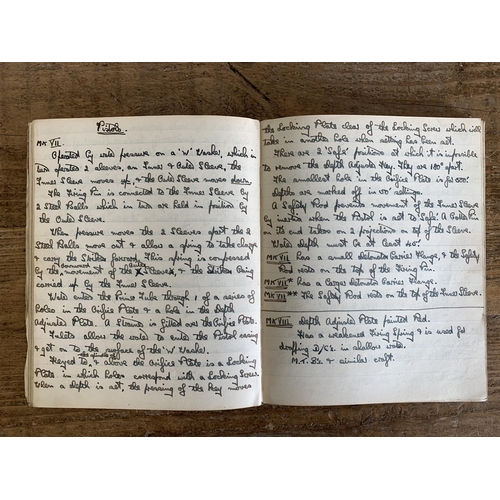 Pistols.
MK VII.
Operated by water pressure on a 'V' Washer, which in
turn operates 2 sleeves, an Inner & Outer Sleeve, the
Inner Sleeve moves up, & the Outer Sleeve moves down.
The Firing Pin is connected to the Inner Sleeve by
2 Steel Balls which in turn are held in position by
the Outer Sleeve.
When pressure moves the 2 Sleeves apart the 2
Steel Balls move out & allow a spring to take charge
& carry the Striker forward. This spring is compressed
by the movement of the Sleeves, & the Striker being
carried up by the Inner Sleeve.
Water enters the Primer Tube through 1 of a series of
holes in the Orifice Plate & a hole in the Depth
Adjusting Plate. A Strum is fitted over the Orifice Plate.
Inlets allow the water to enter the Pistol casing
& get on to the surface of the 'V' Washer.
Keyed to, & above the Orifice Plate is a Locking
Plate in which holes correspond with a Locking Screw.
When a depth is set, the pressing of the key moves
the Locking Plate clear of the Locking Screw which will
take in another hole when setting has been set.
There are 2 'Safe' positions at which it is impossible
to remove the Depth Adjusting Key. They are 180° apart.
The smallest hole in the Orifice Plate is for 500'.
Depths are marked off in 00' settings.
A Safety Rod prevents movement of the Inner Sleeve
by inertia when the Pistol is set to 'Safe'. A
on its end takes on 2 projections on top of the Sleeve.
Water depth must be at least 45'.
MK VII has a small detonator Carrier Flange, & the Safety
Rod rests on the top of the Firing Pin.
MK VII* has a larger detonator Carrier Flange.
MK VII** The Safety Rod rests on the top of the Inner Sleeve.
MK VIII. Depth Adjusting Plate painted Red.
Has a weakened Firing Spring & is used for
dropping D/C's in shallow water.
M.T.B's & similar craft.